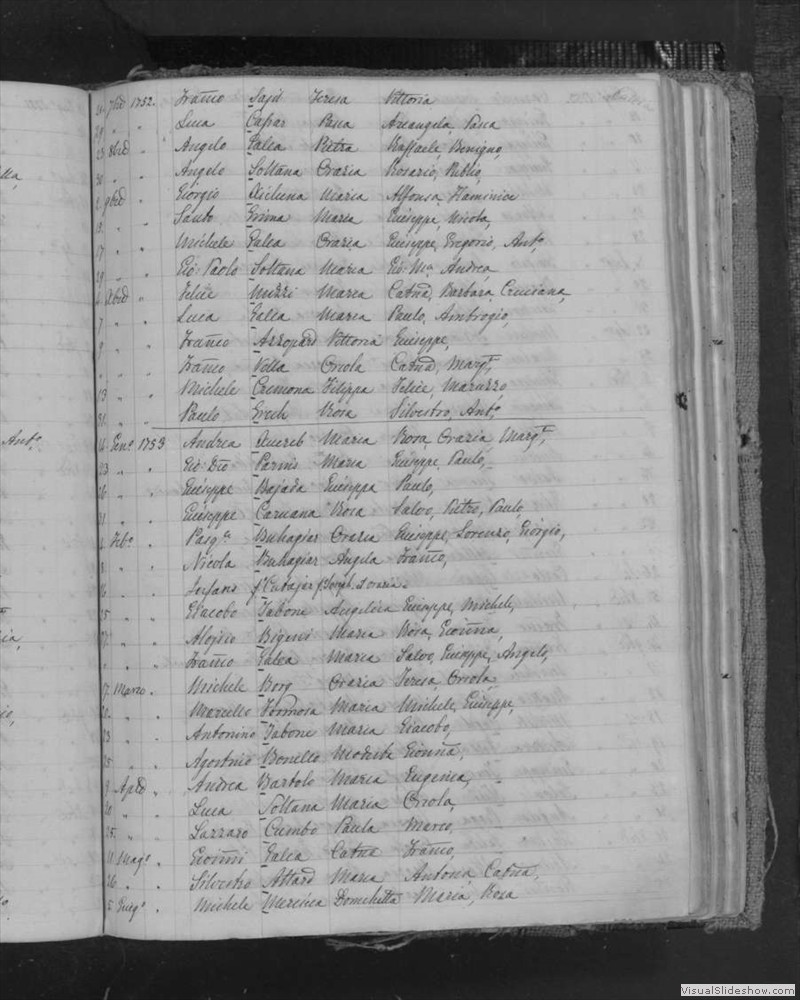 7bre 1752. Franco Sajd Teresa Vittoria
" " Luca Caspar Pasca Arcangela, Pasca
23 8bre " Angelo Galea Pietra Raffaele, Benigno,
30 " " Angelo Soltana Grazia Rosario, Publio,
9bre " Giorgio Xicluna Maria Alfonsa, Flaminia
" " Santo Grima Maria Giuseppe, Nicola,
17 " " Michele Galea Grazia Giuseppe, Gregorio, Anto
29 " " Gio: Paolo Soltana Maria Gio: Ma, Andrea
Xbre " Felice Muzzi Maria Catna, Barbara, Cruciana,
7 " " Luca Galea Maria Paulo, Ambrogio,
9 " " Franco Azzopard Vittoria Giuseppe,
" " " Franco Vella Orsola Catna, Margta,
13 " " Michele Cremona Filippa Felice, Maruzzo
31 " " Paulo Grech Rosa Silvestro, Anto,
16 Geno. 1753 Andrea Xuereb Maria Rosa, Grazia, Margta,
23 " " Gio: Bta Parnis Maria Giuseppe, Paulo,
26 " " Giuseppe Bajada Giuseppa Paulo,
31 " " Giuseppe Caruana Rosa Salvo, Pietro, Paulo
Febo. " Pasqle Buhagiar Grazia Giuseppe, Lorenzo, Giorgio,
8 " " Nicola Buhagiar Angela Franco,
16 " " Stefano
25 " " Giacobo Tabone Angelica Giuseppe, Michele,
27 " " Alojsio Bigeni Maria Rosa, Gionna,
" " " Franco Galea Maria Salvo, Giuseppe, Angelo,
17 Marzo " Michele Borg Grazia Teresa, Orsola,
20 " " Marcello Formosa Maria Michele, Giuseppe,
23 " " Antonino Tabone Maria Giacobo,
25 " " Agostino Bonello Modesta Gionna,
9 Aple " Andrea Bartolo Maria Eugenia,
20 " " Luca Soltana Maria Orsola,
25 " " Lazzaro Cumbo Paula Marco,
11 Mago " Gionni Galea Catna Franco,
26 " " Silvestro Attard Maria Antonia, Catna,
5 Giugo " Michele Mercieca Domchetta Maria, Rosa
Anto.
VisualSlideshow.com